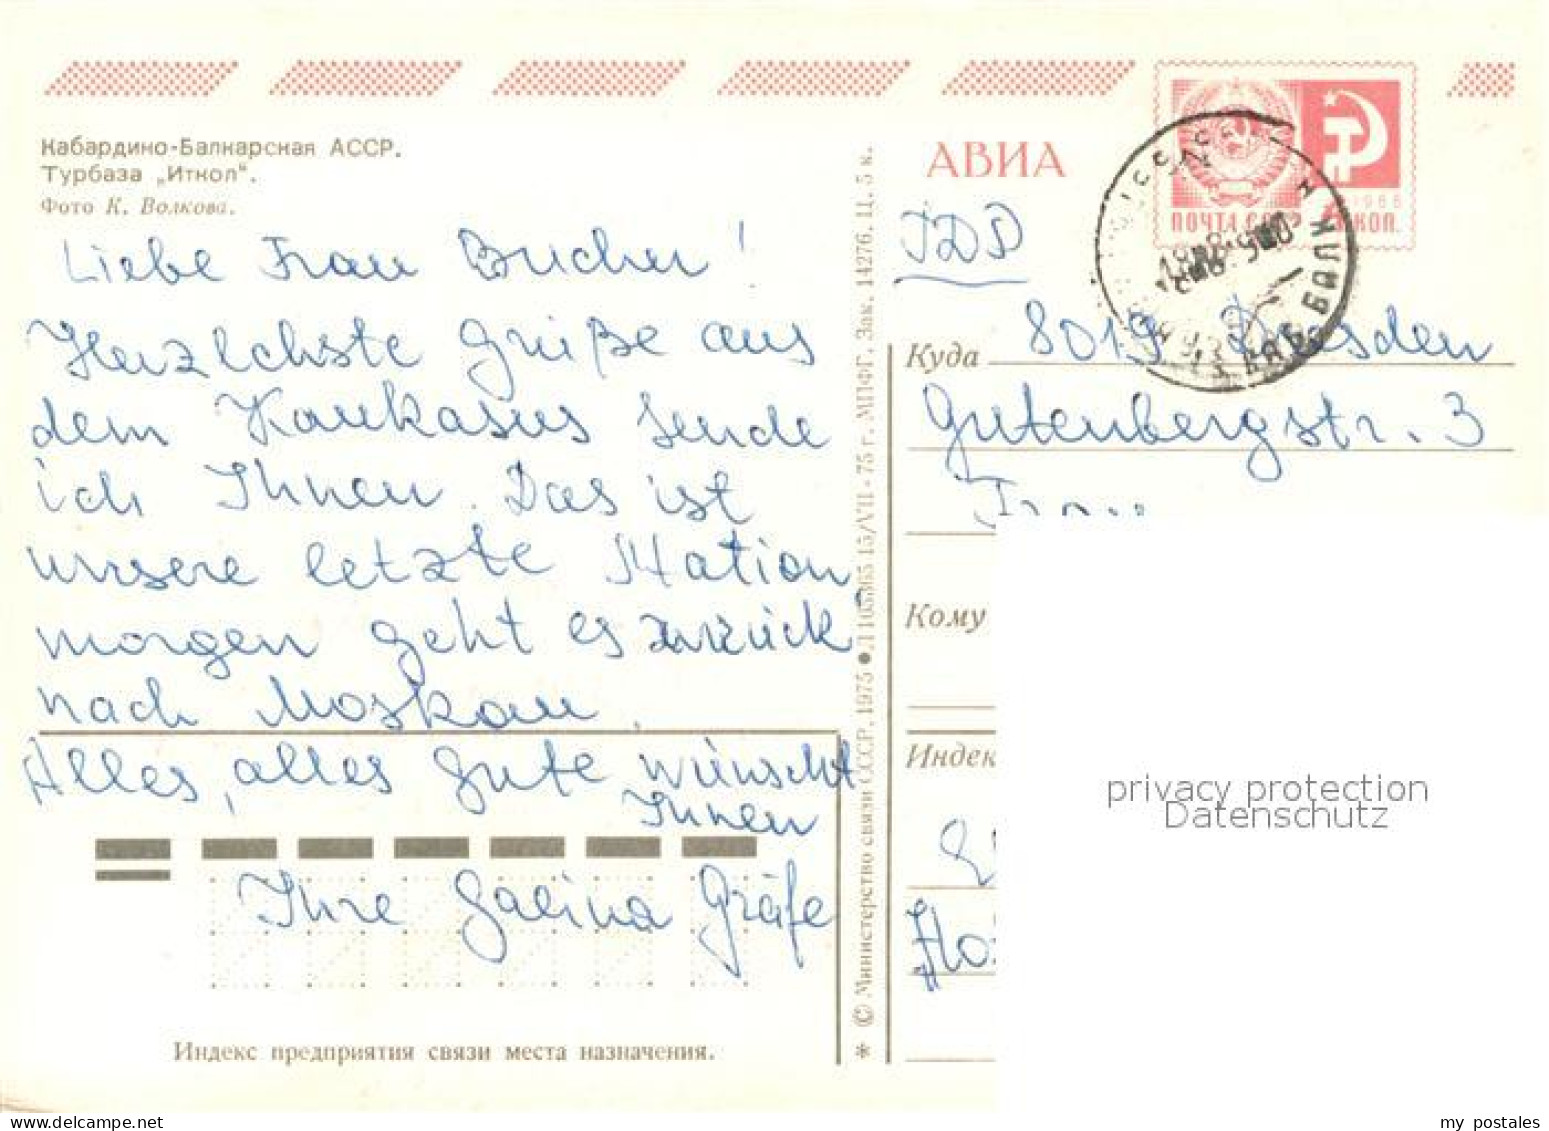 Кабардино-Балкарская АССР.
Турбаза „Иткол".
Фото К. Волкова.
Liebe Frau Bucher!
Herzlchste Grüße aus
dem Kaukasus sende
ich Ihnen. Das ist
unsere letzte Station,
morgen geht es zurück
nach Moskau.
Alles, alles gute wünscht
Ihnen
Ihre Galina Gräfe
Индекс предприятия связи места назначения.
* © Министерство связи СССР, 1975 ● Л 103865 15/VII-75 г. МПФГ. Зак. 14276. Ц. 5 к.
АВИА
ПОЧТА СССР КОП.
Куда
8019 Dresden
Gutenbergstr. 3
Frau
Кому
Индек
privacy protection
Datenschutz
my postales